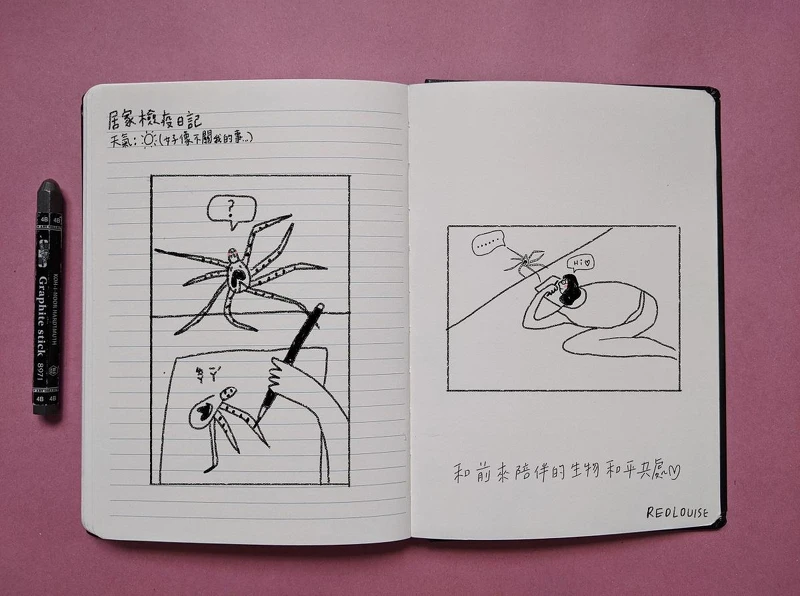 居家檢疫日記
天氣:☼(好像不關我的事...)
?
......
Hi♡
和前來陪伴的生物和平共處~♡
REDLOUISE
4B 4B
KOH-I-NOOR HARDTMUTH
Graphite stick
8971
4B 4B